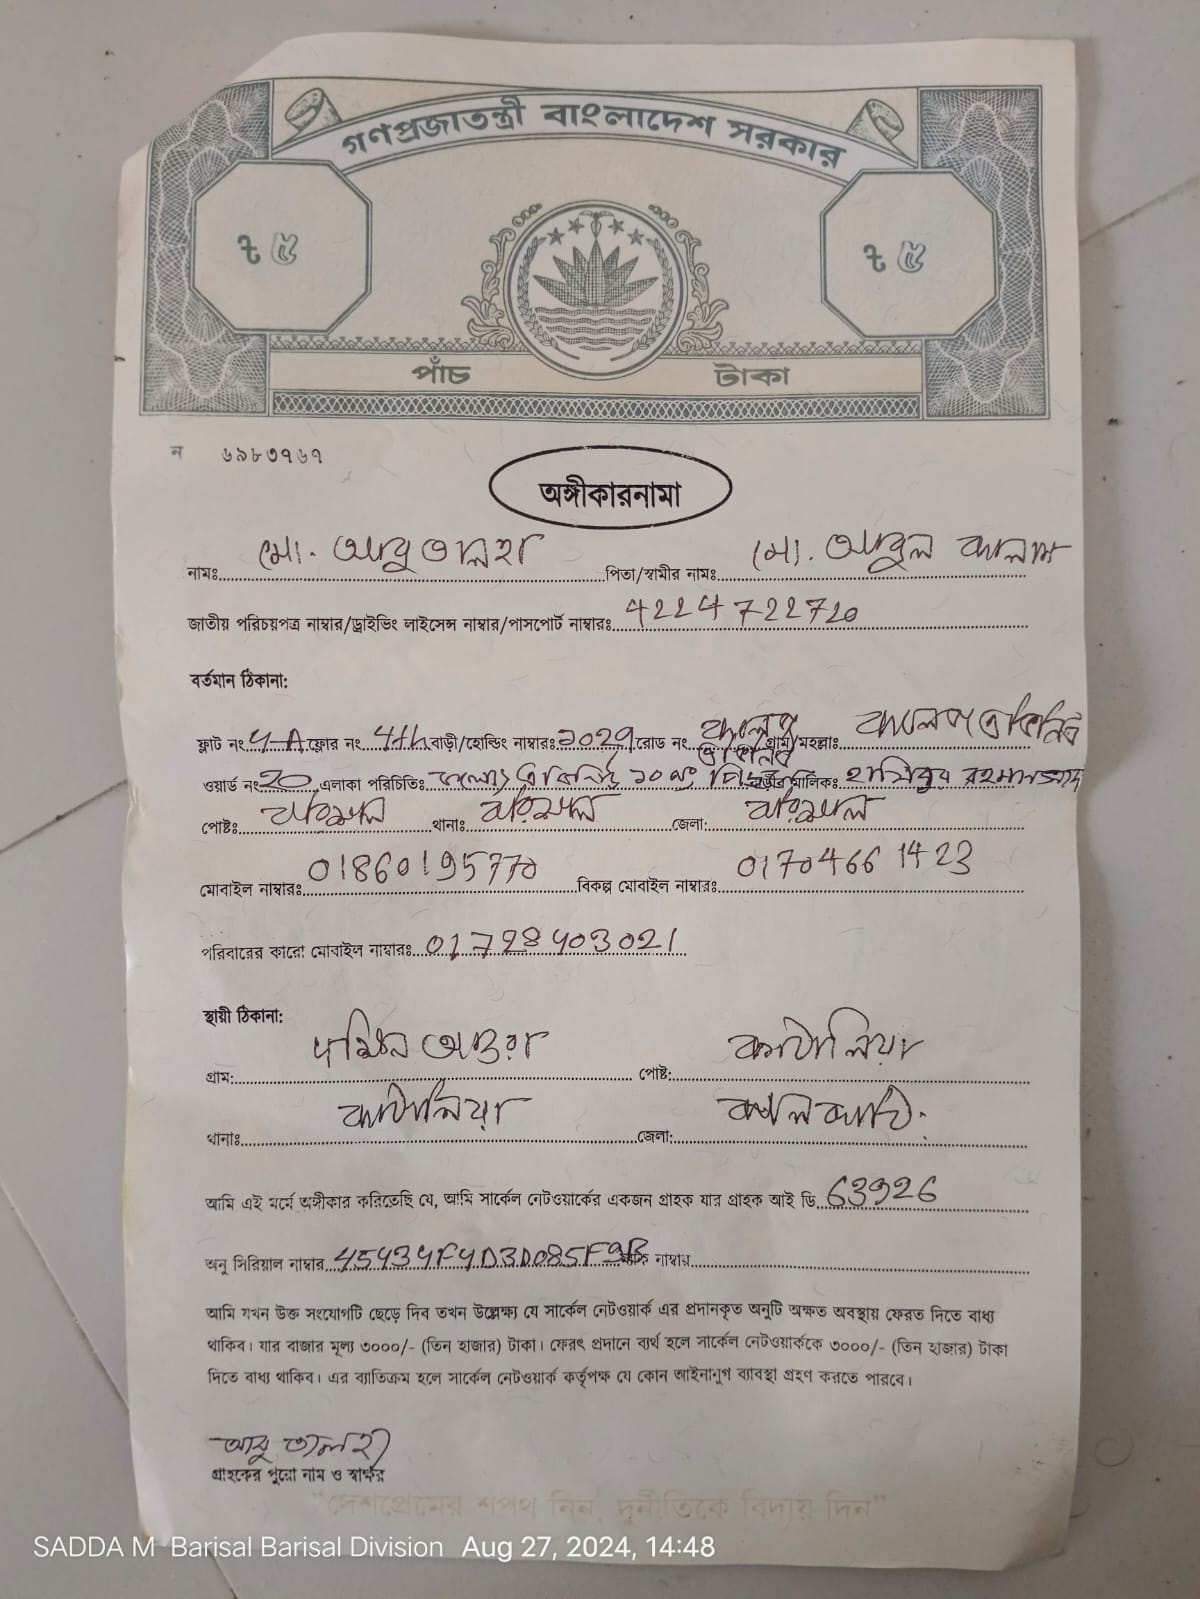 গণপ্রজাতন্ত্রী বাংলাদেশ সরকার
৳ ৫ ৳ ৫
পাঁচ টাকা
ন ৬৯৮৩৭৬৭
অঙ্গীকারনামা
নামঃ মো. আবু তালহা পিতা/স্বামীর নামঃ মো. আবুল কালাম
জাতীয় পরিচয়পত্র নাম্বার/ড্রাইভিং লাইসেন্স নাম্বার/পাসপোর্ট নাম্বারঃ 4224722720
বর্তমান ঠিকানা:
ফ্লাট নং 4-A ফ্লোর নং 4th বাড়ী/হোল্ডিং নাম্বারঃ রোড নং কলেজ এভিনিউ গ্রাম/মহল্লাঃ কলেজ এভিনিউ
ওয়ার্ড নং 20 এলাকা পরিচিতিঃ কলেজ এভিনিউ ১০ নং মালিকঃ হাবিবুর রহমান
পোষ্টঃ বরিশাল থানাঃ বরিশাল জেলা: বরিশাল
মোবাইল নাম্বারঃ 01860195770 বিকল্প মোবাইল নাম্বারঃ 01704661423
পরিবারের কারো মোবাইল নাম্বারঃ 01728403021
স্থায়ী ঠিকানা:
গ্রাম: দক্ষিন আউরা পোষ্ট: কাঠালিয়া
থানাঃ কাঠালিয়া জেলা: ঝালকাঠি
আমি এই মর্মে অঙ্গীকার করিতেছি যে, আমি সার্কেল নেটওয়ার্কের একজন গ্রাহক যার গ্রাহক আই ডি 63926
অনু সিরিয়াল নাম্বার 45434F4D3D085F9B নাম্বার
আমি যখন উক্ত সংযোগটি ছেড়ে দিব তখন উল্লেক্ষ্য যে সার্কেল নেটওয়ার্ক এর প্রদানকৃত অনুটি অক্ষত অবস্থায় ফেরত দিতে বাধ্য
থাকিব। যার বাজার মূল্য ৩০০০/- (তিন হাজার) টাকা। ফেরৎ প্রদানে ব্যর্থ হলে সার্কেল নেটওয়ার্ককে ৩০০০/- (তিন হাজার) টাকা
দিতে বাধ্য থাকিব। এর ব্যাতিক্রম হলে সার্কেল নেটওয়ার্ক কর্তৃপক্ষ যে কোন আইনানুগ ব্যাবস্থা গ্রহণ করতে পারবে।
আবু তালহা
গ্রাহকের পুরো নাম ও স্বাক্ষর
"দেশপ্রেমের শপথ নিন, দুর্নীতিকে বিদায় দিন"
SADDA M Barisal Barisal Division Aug 27, 2024, 14:48